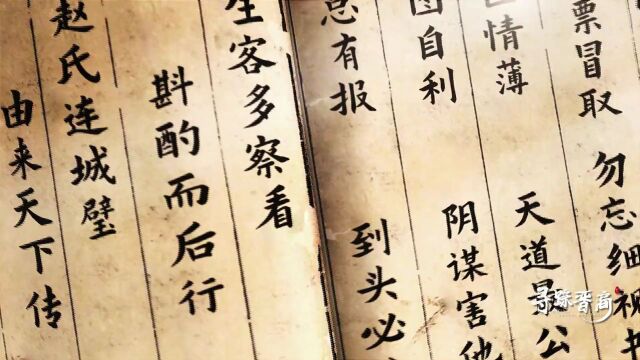 票冒取 勿忘细视书
情薄 天道最公
图自利 阴谋害他
总有报 到头必
生客多察看
斟酌而后行
赵氏连城璧
由来天下传
寻踪晋商